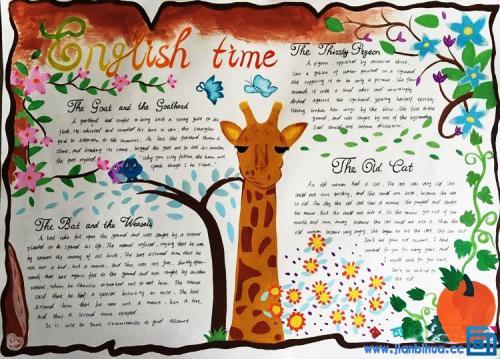 English time
The Thirsty Pigeon
A pigeon, oppressed by excessive thirst,
saw a goblet of water painted on a signboard.
Not supposing it to be only a picture, she flew
towards it with a loud and unwittingly
dashed against the signboard, jarring herself terribly.
Having broken her wings by the blow, she fell to the
ground, and was caught by one of the bystanders.
Zeal should not outrun discretion.
The Goat and the Goatherd
A goatherd had sought to bring back a stray goat to his
flock. He whistled and sounded his horn in vain; the straggler
paid no attention to the summons. At last the goatherd threw a
stone, and breaking its horn, begged the goat not to tell his master.
The goat replied, "Why, you silly fellow, the horn will
speak though I be silent."
The Old Cat
An old woman had a cat. The cat was very old. She
could not run quickly, and she could not bite, because she was
so old. One day the old cat saw a mouse. She jumped and caught
the mouse. But she could not bite it. So the mouse got out of her
mouth and ran away, because the cat could not bite it. Then the
old woman became very angry. She began to hit the cat. The cat said,
Don't hit your old servant. I have
worked for you for many years, and I
would work for you still,
Don't be unkind to
the old
The Bat and the Weasels
A bat who fell upon the ground and was caught by a weasel
pleaded to be spared his life. The weasel refused, saying that he was
by nature the enemy of all birds. The bat assured him that he
was not a bird, but a mouse, and thus was set free. Shortly after-
wards the bat again fell to the ground and was caught by another
weasel, whom he likewise entreated not to eat him. The weasel
said that he had a special hostility to mice. The bat
assured him that he was not a mouse, but a bat,
and thus a second time escaped.
It is wise to turn circumstances to good account.
www.jianbihua.cc